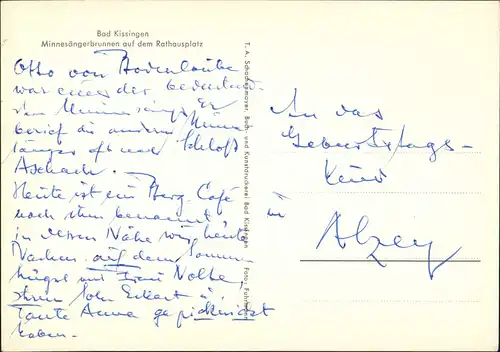 Bad Kissingen
Minnesängerbrunnen auf dem Rathausplatz
Otto von Bodenlaube
war einer der bedeutend-
sten Minnesänger. Er
berief die anderen Minne
sänger oft nach Schloß
Aschach.
Heute ist ein Berg-Café
nach ihm benannt
in dessen Nähe wir heute
Nachm. auf dem Sonnen
hügel mit Frau Nolte,
ihrem Sohn Eckart u.
Tante Anna gepicknickt
haben.
T. A. Schachenmayer, Buch- und Kunstdruckerei Bad Kissingen
Foto:
An das
Geburtstags-
Kind
in
Alzey